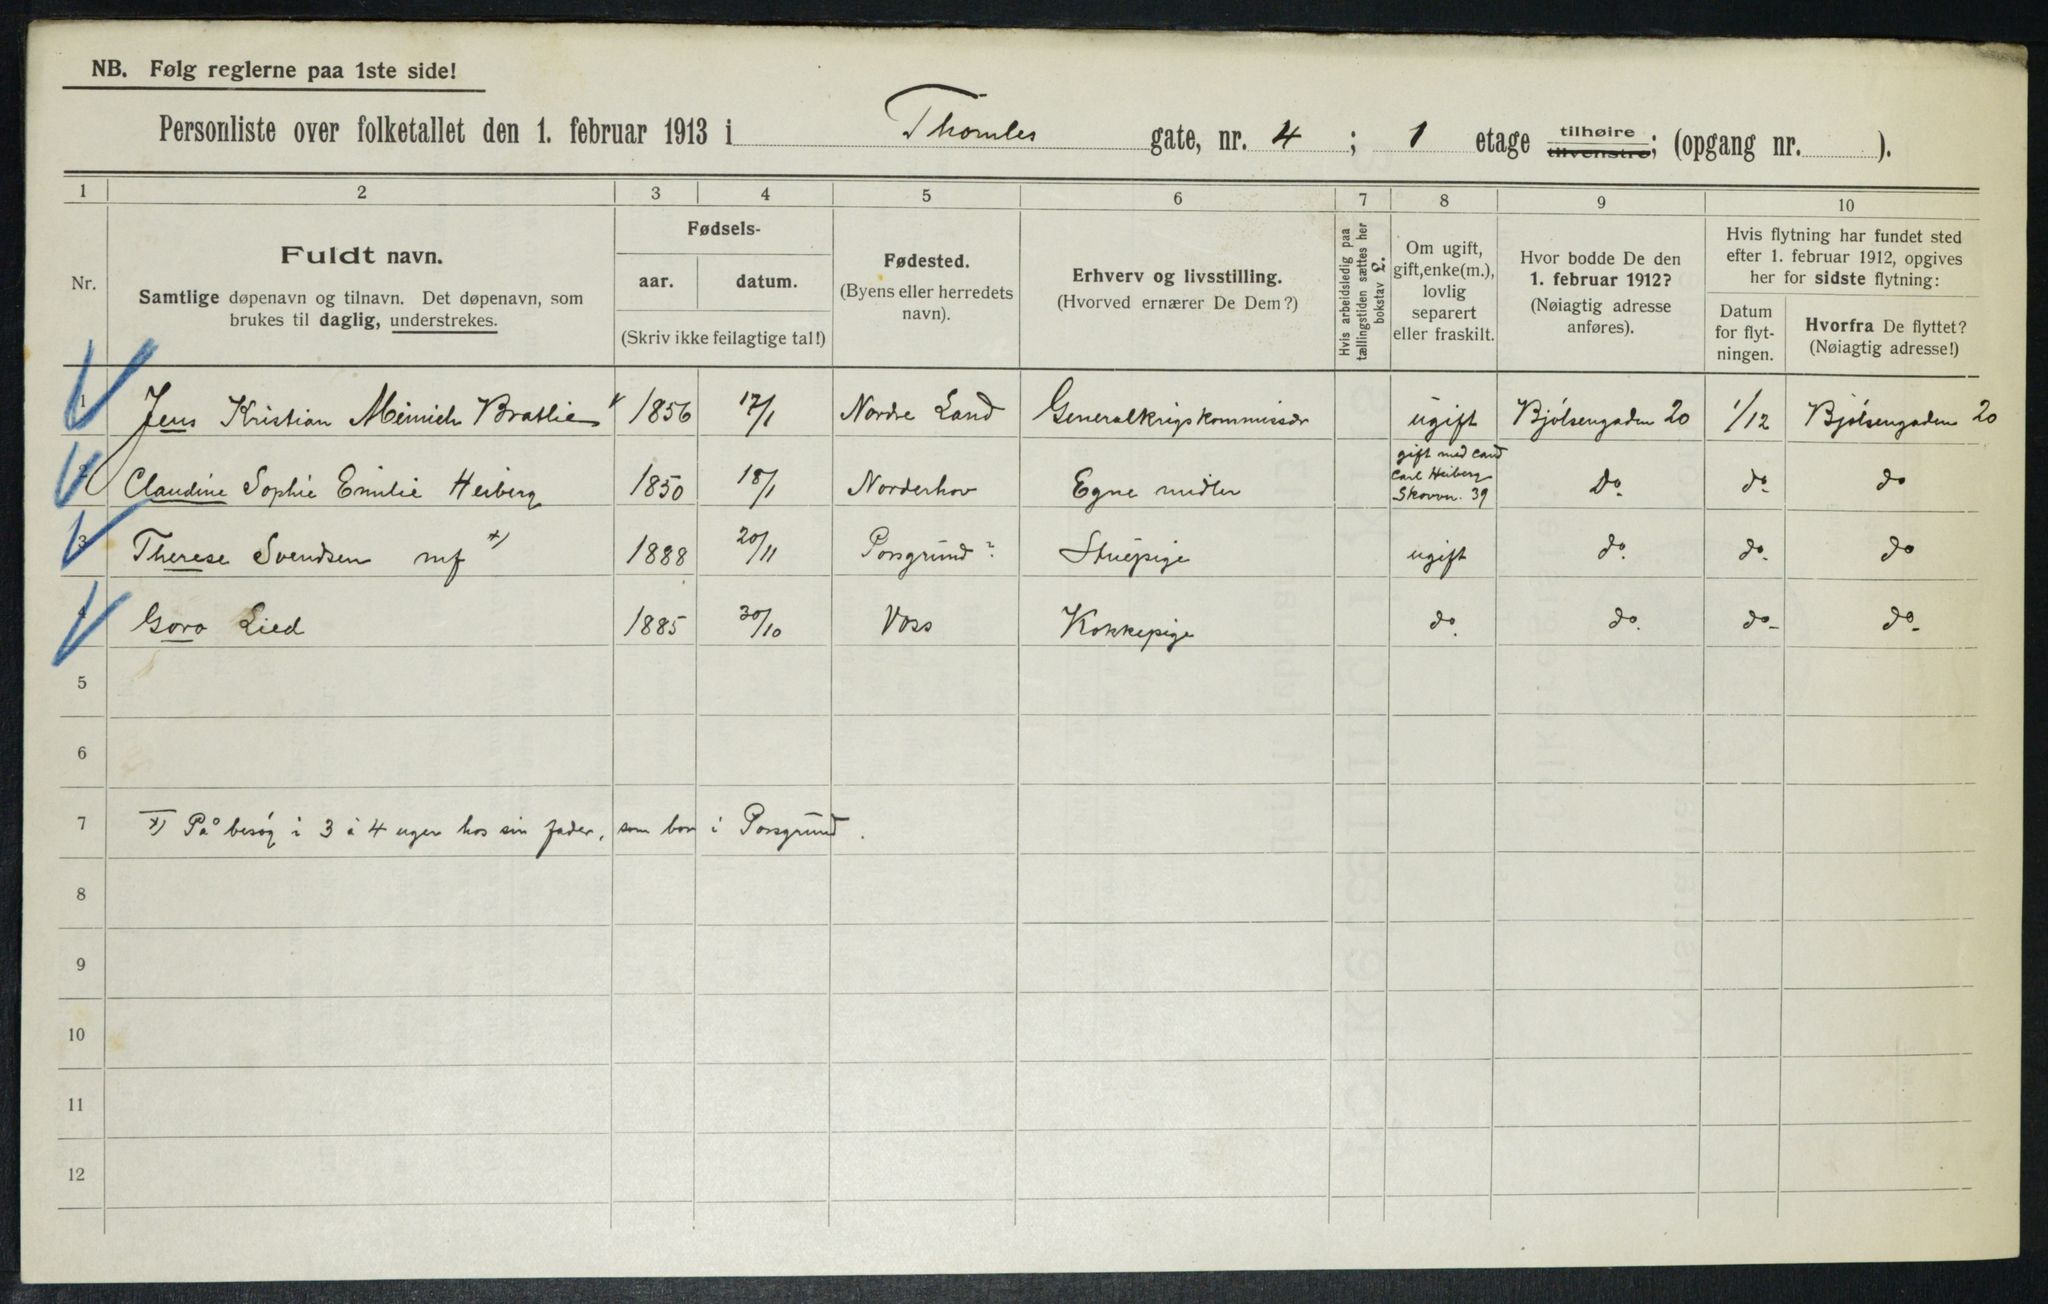 NB. Følg reglerne paa 1ste side!
Personliste over folketallet den 1. februar 1913 i Thomles gate, nr. 4 ; 1 etage tilhøire tilvenstre; (opgang nr. ).
1 2 3 4 5 6 7 8 9 10
Nr.
Fuldt navn.
Samtlige døpenavn og tilnavn. Det døpenavn, som
brukes til daglig, understrekes.
Fødsels-
aar. datum.
(Skriv ikke feilagtige tal!)
Fødested.
(Byens eller herredets
navn).
Erhverv og livsstilling.
(Hvorved ernærer De Dem?)
Hvis arbeidsledig paa
tællingstiden sættes her
bokstav L.
Om ugift,
gift, enke(m.),
lovlig
separert
eller fraskilt.
Hvor bodde De den
1. februar 1912?
(Nøiagtig adresse
anføres).
Hvis flytning har fundet sted
efter 1. februar 1912, opgives
her for sidste flytning:
Datum
for flyt-
ningen.
Hvorfra De flyttet?
(Nøiagtig adresse!)
1 Jens Kristian Meinich Bratlie 1856 17/1 Nordre Land Generalkrigskommissær ugift Bjølsengaden 20 1/12 Bjølsengaden 20
2 Claudine Sophie Emilie Heiberg 1850 18/1 Norderhov Egne midler gift med cand Carl Heiberg Skovvn. 39 Do. do. do
3 Therese Svendsen mf x) 1888 20/11 Porsgrund ? Stuepige ugift do. do. do
4 Goro Lied 1885 30/10 Voss Kokkepige do. do. do- do-
5
6
7 x) På besøg i 3 à 4 uger hos sin fader, som bor i Porsgrund.
8
9
10
11
12